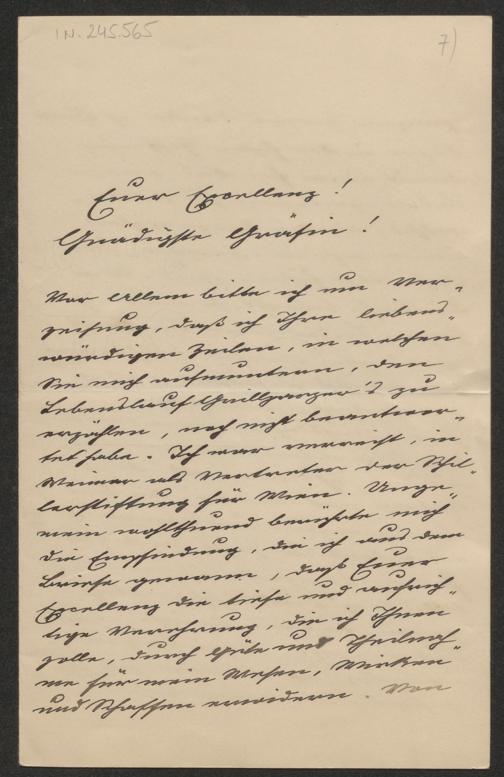 IN. 245.565
7)
Euer Excellenz!
Gnädigste Gräfin!
Vor Allem bitte ich um Ver-
zeihung, daß ich Ihre liebens-
würdigen Zeilen, in welchen
Sie mich aufmuntern, den
Lebenslauf Grillparzer's zu
erzählen, noch nicht beantwor-
tet habe. Ich war verreist, in
Weimar als Vertreter der Schil-
lerstiftung für Wien. Unge-
mein wohlthuend berührte mich
die Empfindung, die ich aus dem
Briefe gewann, daß Euer
Excellenz die tiefe und aufrich-
tige Verehrung, die ich Ihnen
zolle, durch Güte und Theilnah-
me für mein Wesen, Wirken
und Schaffen erwidern. Von